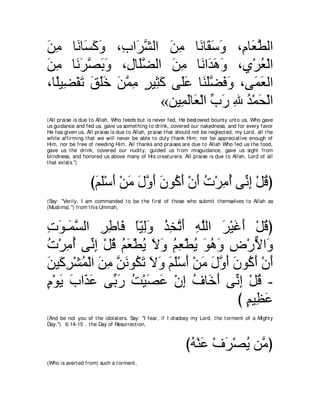 الطَّعَامِ، وَأَسْقَانَا مِنَ الشَّرَابِ، وَكَسَانَا مِنَ
الْعُرْيِ، وَهَدَانَا مِنَ الضَّلَالِ، وَبَصَّرَنَا مِنَ
الْعَمَى، وَفَضَّلَنَا عَلَى كَثِيرٍ مِمَّنْ خَلَقَ تَفْضِيلًا،
الْحَمْدُ للهِ رَبِّ الْعَالَمِين»
(All praise is due to Allah, Who feeds but is never fed. He bestowed bounty unto us, Who gave
us guidance and fed us, gave us something to drink, covered our nakedness, and for every favor
He has given us. All praise is due to Allah, praise that should not be neglected, my Lord, all the
while affirming that we will never be able to duly thank Him; nor be appreciative enough of
Him, nor be free of needing Him. All thanks and praises are due to Allah Who fed us the food,
gave us the drink, covered our nudity, guided us from misguidance, gave us sight from
blindness, and honored us above many of His creatures. All praise is due to Allah, Lord of all
that exists.")
(قُلْ إِنِّى أُمِرْتُ أَنْ أَكُونَ أَوَّلَ مَنْ أَسْلَمَ)
(Say: "Verily, I am commanded to be the first of those who submit themselves to Allah as
(Muslims).") from this Ummah,
(قُلْ أَغَيْرَ اللَّهِ أَتَّخِذُ وَلِيّاً فَاطِرِ السَّمَـوَتِ
وَالاٌّرْضِ وَهُوَ يُطْعِمُ وَلاَ يُطْعَمُ قُلْ إِنِّى أُمِرْتُ
أَنْ أَكُونَ أَوَّلَ مَنْ أَسْلَمَ وَلاَ تَكُونَنَّ مِنَ الْمُشْرِكَينَ
- قُلْ إِنِّى أَخَافُ إِنْ عَصَيْتُ رَبِّى عَذَابَ يَوْمٍ
عَظِيمٍ )
(And be not you of the idolaters. Say: "I fear, if I disobey my Lord, the torment of a Mighty
Day.") 6:14-15 , the Day of Resurrection,
(مَّن يُصْرَفْ عَنْهُ)
(Who is averted from) such a torment,